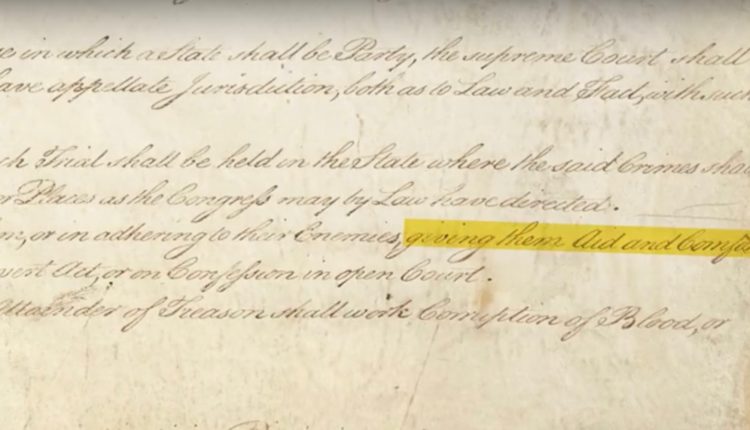 in which a State shall be Party, the supreme Court shall
have appellate Jurisdiction, both as to Law and Fact, with such
Trial shall be held in the State where the said Crimes shall
or Places as the Congress may by Law have directed.
or in adhering to their Enemies, giving them Aid and Comfo
vert Act, or on Confession in open Court.
Attainder of Treason shall work Corruption of Blood, or